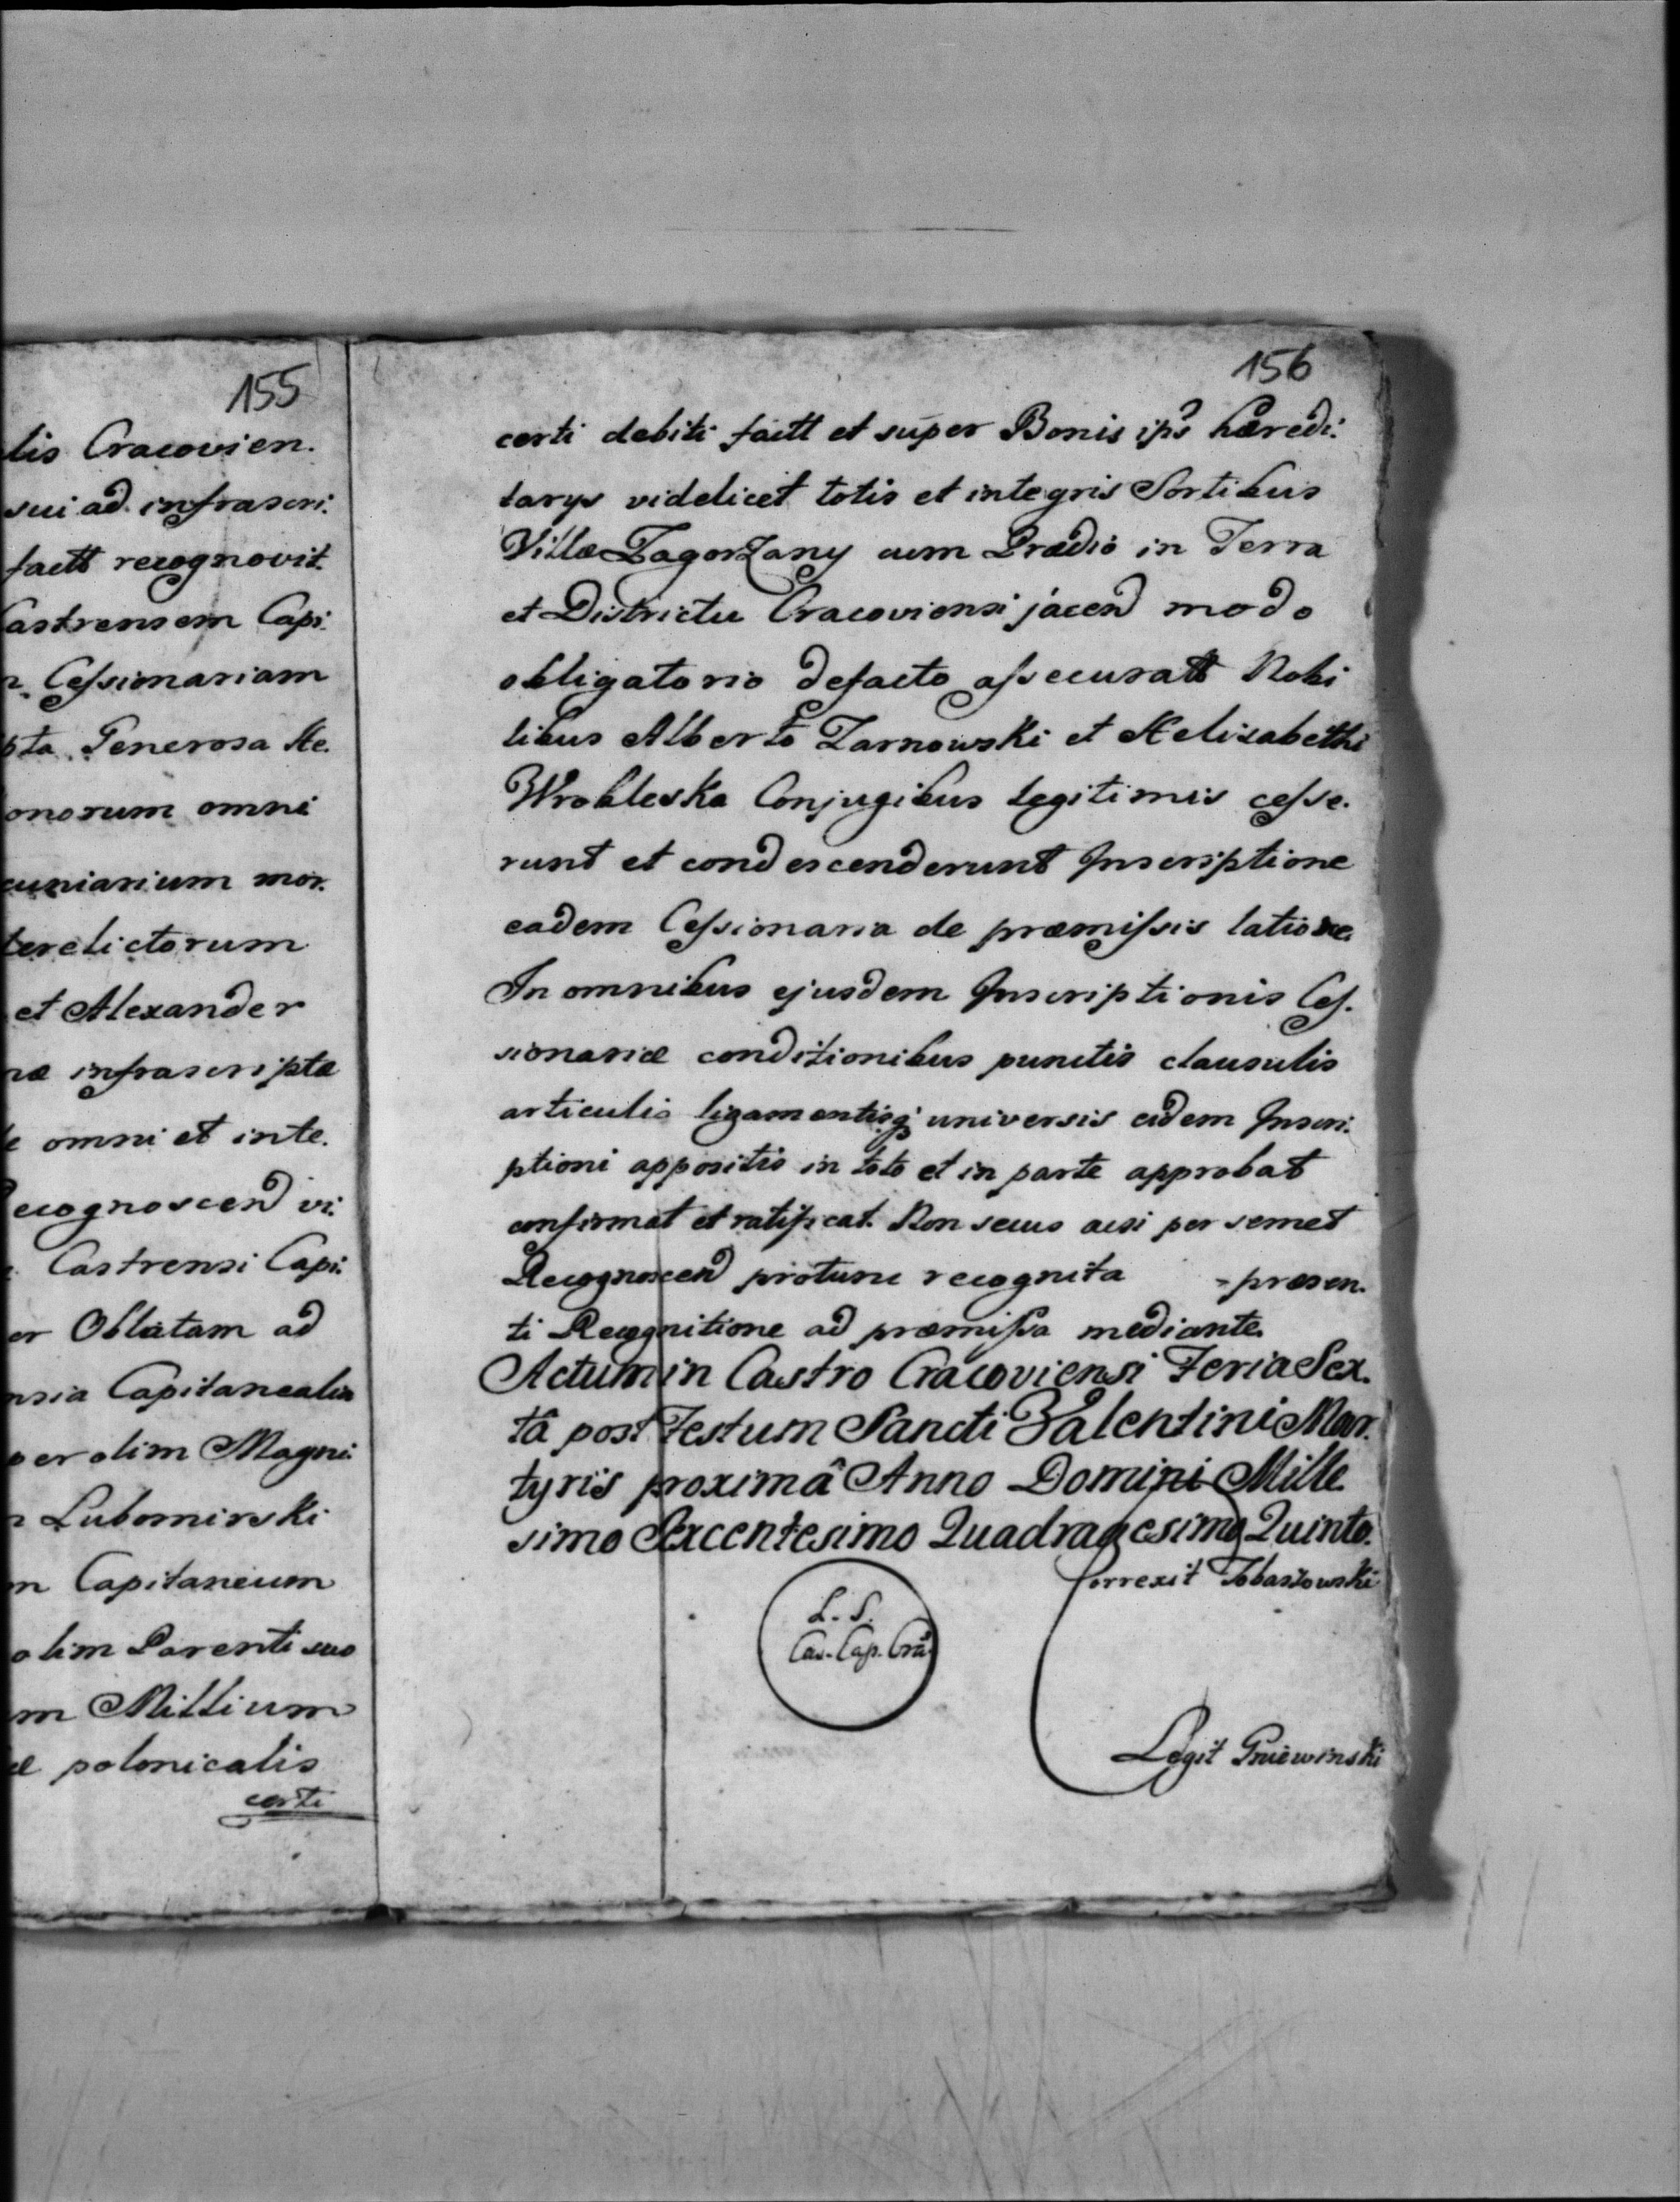 155
lis Cracovien.
sui ad infrascri.
factt recognovit.
Castrensem Capi.
Cessionariam
pta Generosa He.
onorum omni
cuniarium mor.
terelictorum
et Alexander
næ infrascriptæ
omni et inte.
Recognoscend vi.
Castrensi Capi.
er Oblatam ad
nsia Capitanealia
per olim Magni.
Lubomirski
m Capitaneum
olim Parenti suo
m Millium
polonicalis
certi
156
certi debiti factt et super Bonis ips hæredi.
tarys videlicet totis et integris Sortibus
Villæ Zagorzany cum Prædio in Terra
et Districtu Cracoviensi jacend modo
obligatorio defacto assecuratt Nobi
libus Alberto Zarnowski et Helizabethi
Wrobleska Conjugibus legitimis cesse.
runt et condescenderunt Inscriptione
eadem Cessionaria de præmissis latiore.
In omnibus ejusdem Inscriptionis Ces.
sionariæ conditionibus punctis clausulis
articulis ligamentisq universis eidem Inscri.
ptioni appositis in toto et in parte approbat
confirmat et ratificat. Non secus acsi per semet
Recognoscend protunc recognita = præsen.
ti Recognitione ad præmissa mediante.
Actum in Castro Cracoviensi Feria Sex.
tâ post Festum Sancti Valentini Mar.
tyris proximâ Anno Domini Mille.
simo Sexcentesimo Quadragesimo Quinto.
Correxit Tobaszowski
L. S.
Cas. Cap. Cra.
Legit Gniewinski